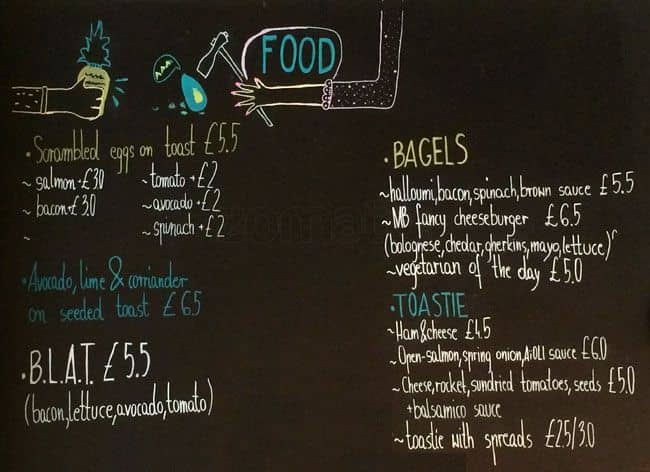 FOOD
·Scrambled eggs on toast £5.5
~salmon+£3.0
~bacon+£3.0
~
~tomato+£2
~avocado+£2
~spinach+£2
·Avocado, lime & coriander
on seeded toast £6.5
·B.L.A.T. £5.5
(bacon, lettuce, avocado, tomato)
·BAGELS
~halloumi, bacon, spinach, brown sauce £5.5
~MB fancy cheeseburger £6.5
(bolognese, chedar, gherkins, mayo, lettuce)
~vegetarian of the day £5.0
·TOASTIE
~Ham&cheese £4.5
~Open-salmon, spring onion, AiOLI sauce £6.0
~Cheese, rocket, sundried tomatoes, seeds £5.0
+balsamico sauce
~toastie with spreads £2.5/3.0
zomato